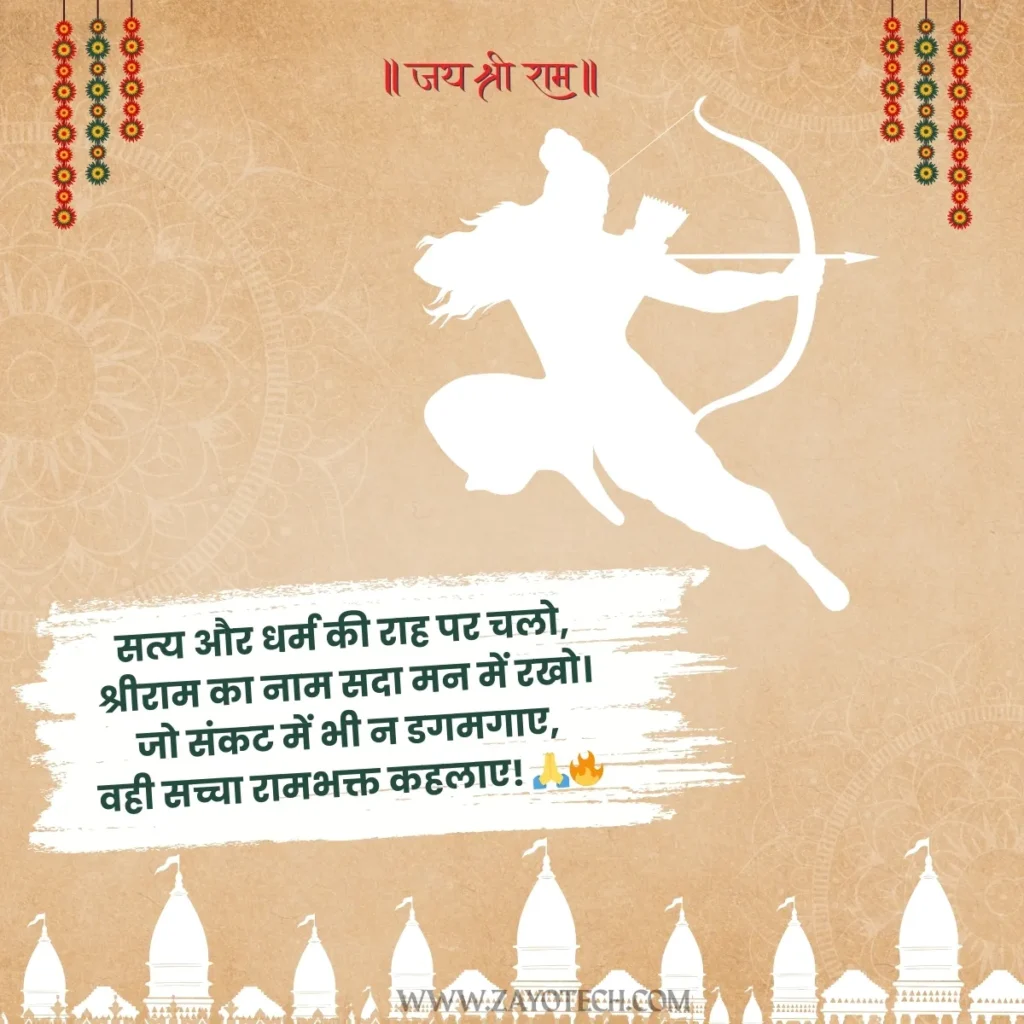 ॥ जय श्री राम ॥
सत्य और धर्म की राह पर चलो,
श्रीराम का नाम सदा मन में रखो।
जो संकट में भी न डगमगाए,
वही सच्चा रामभक्त कहलाए! 🙏🔥
WWW.ZAYOTECH.COM